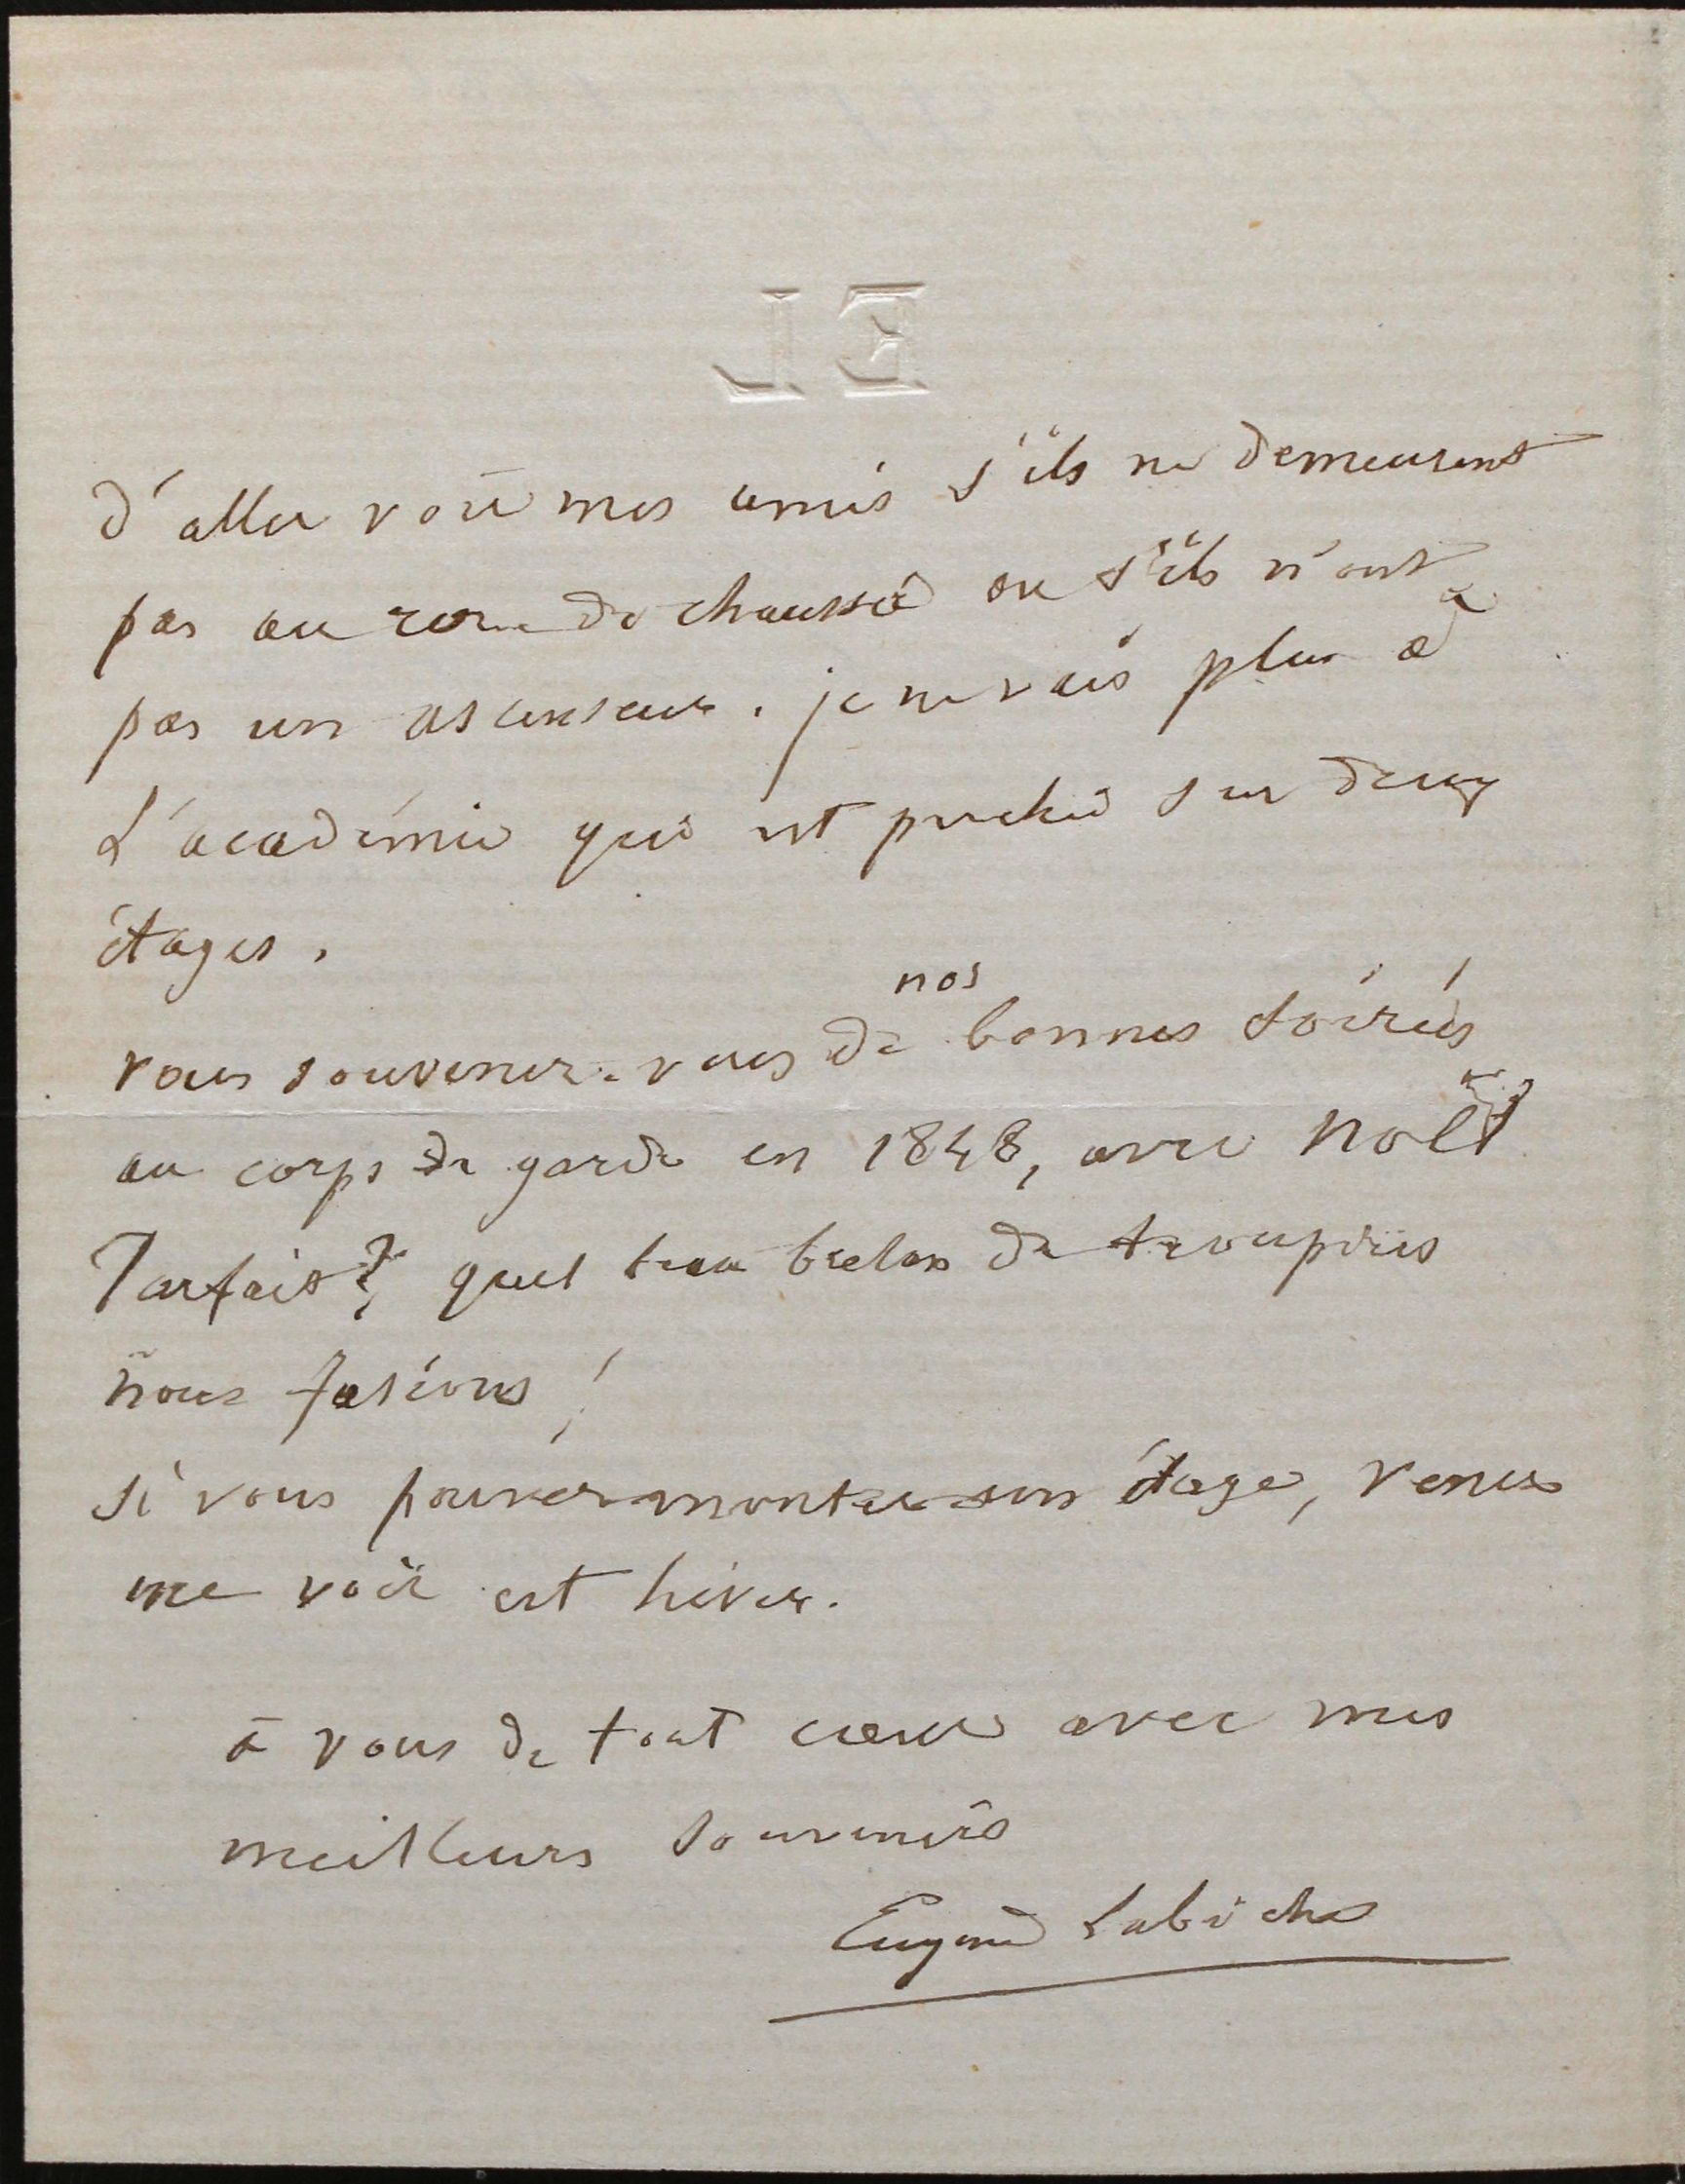 EL
d'aller voir mes amis s'ils ne demeurent
pas au rez de chaussée ou s'ils n'ont
pas un ascenseur. je ne vais plus à
L'académie qui est perchée sur deux
étages.
vous souvenez-vous de nos bonnes soirées
au corps de garde en 1848, avec Noël
Parfait? quel beau brelan de troupiers
nous fesions!
si vous pouvez monter un étage, venez
me voir cet hiver.
à vous de tout coeur avec mes
meilleurs souvenirs
Eugène Labiche